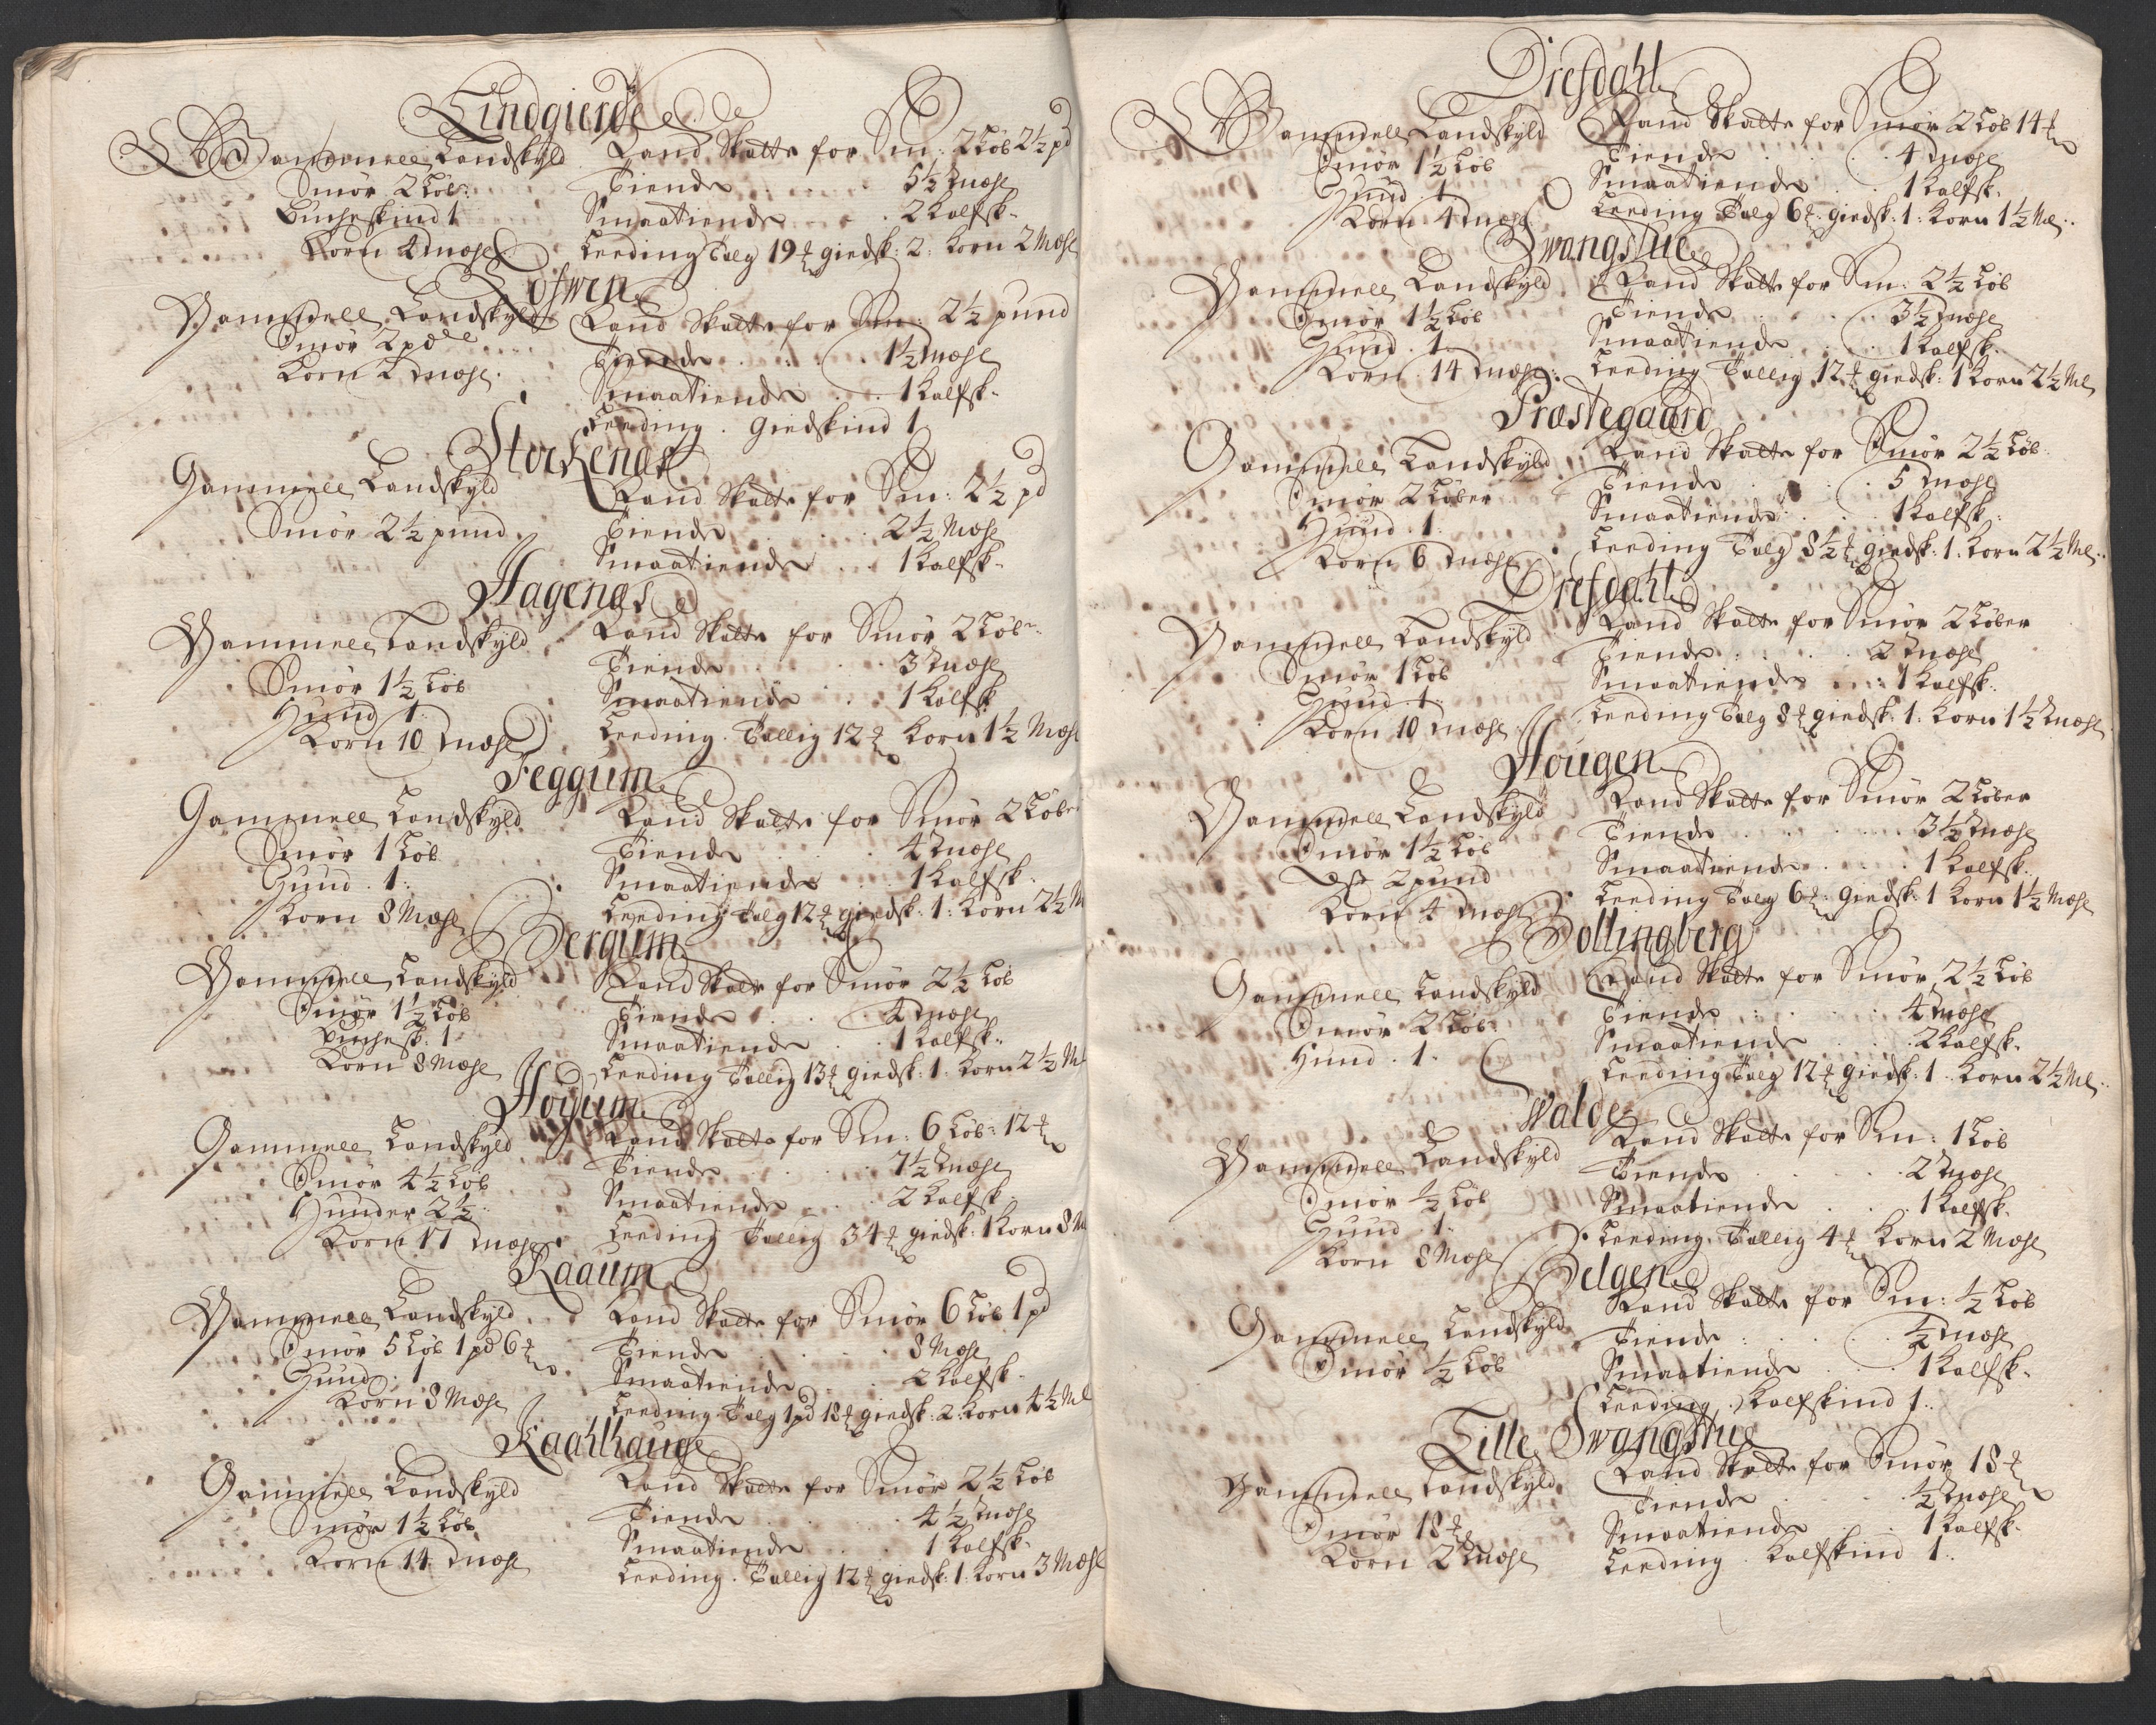 Lindgierde
Gammell Landskyld
Smör 2 Löb:
Bucheskind 1
Korn 4 Mæhl
Land Skatt for Sm: 2 Löb 2½ pd
Tiende . . . 5½ Mæhl
Smaatiende . . . 2 Kalfsk.
Leeding Talg 19 ℔ giedsk: 2: Korn 2 Mæhl
Lofwen
Gammell Landskyld
Smör 2 pd
Korn 2 Mæhl.
Land Skatt for Sm: 2½ pund
Tiende . . . 1½ Mæhl
Smaatiende . . . 1 Kalfsk.
Leeding . Giedskind 1
Storkenæs
Gammell Landskyld
Smör 2½ pund
Land Skatt for Sm: 2½ pd
Tiende . . . 2½ Mæhl
Smaatiende . . . 1 Kalfsk.
Hagenæs
Gammell Landskyld
Smör 1½ Löb
Huud 1.
Korn 10 Mæhl
Land Skatt for Smör 2 Löb:
Tiende . . . 3 Mæhl
Smaatiende . 1 Kalfsk
Leeding . Tallig 12 ℔ Korn 1½ Mæhl
Feggum
Gammell Landskyld
Smör 1 Löb
Huud . 1.
Korn 8 Mæhl
Land Skatt for Smör 2 Löber
Tiende . . . 4 Mæhl
Smaatiende . . 1 Kalfsk.
Leeding Talg 12 ℔ giedsk: 1: Korn 2½ M
Bergum
Gammell Landskyld
Smör 1½ Löb
Buchesk. 1
Korn 8 Mæhl
Land Skatt for Smör 2½ Löb
Tiende . . 4 Mæhl
Smaatiende . . 1 Kalfsk.
Leeding Tallig 13 ℔ giedsk: 1: Korn 2½ M
Höyum
Gammell Landskyld
Smör 4½ Löb
Huuder 2½
Korn 17 Mæhl
Land Skatt for Sm: 6 Löb: 12 ℔
Tiende . . . 7½ Mæhl
Smaatiende . . 2 Kalfsk.
Leeding Tallig 34 ℔ giedsk: 1 Korn 8 M
Raaum
Gammell Landskyld
Smör 5 Löb 1 pd 6 ℔
Huud . 1
Korn 8 Mæhl
Land Skatt for Smör 6 Löb 1 pd
Tiende . . . 8 Mæhl
Smaatiende . . 2 Kalfsk.
Leeding Talg 1 pd 18 ℔ giedsk: 2: Korn 4½ Ml
Kaahlhauge
Gammell Landskyld
Smör 1½ Löb
Korn 14 Mæhl
Land Skatt for Smör 2½ Löb
Tiende . . . 4½ Mæhl
Smaatiende . . . 1 Kalfsk.
Leeding . Tallig 12 ℔ giedsk: 1: Korn 3 Mæhl
Drefdahl
Gammell Landskyld
Smör 1½ Löb
Huud 1
Korn 4 Mæhl
Land Skatt for Smör 2 Löb 14 ℔
Tiende . . . 4 Mæhl
Smaatiende . . 1 Kalfsk.
Leeding Talg 6 ℔: giedsk: 1: Korn 1½ Ml.
Swangstue
Gammell Landskyld
Smör 1½ Löb
Huud . 1.
Korn 14 Mæhl.
Land Skatt for Sm: 2½ Löb
Tiende . . . 3½ Mæhl
Smaatiende . . 1 Kalfsk.
Leeding Tallig 12 ℔ giedsk: 1 Korn 2½ Ml
Præstegaard
Gammell Landskyld
Smör 2 Löber
Huud . 1.
Korn 6 Mæhl
Land Skatt for Smör 2½ Löb.
Tiende . . . 5 Mæhl
Smaatiende . . . 1 Kalfsk.
Leeding Talg 8½ ℔ giedsk: 1. Korn 2½ Ml.
Drefdahl
Gammell Landskyld
Smör 1 Löb
Huud . 1
Korn 10 Mæhl
Land Skatt for Smör 2 Löber
Tiende . . . 2 Mæhl
Smaatiende . . . 1 Kalfsk.
Leeding Talg 8 ℔ giedsk: 1: Korn 1½ Mæhl
Hougen
Gammell Landskyld
Smör 1½ Löb
2 pund
Korn 4 Mæhl
Land Skatt for Smör 2 Löber
Tiende . . . 3½ Mæhl
Smaatiende . . . 1 Kalfsk.
Leeding Talg 6 ℔: Giedsk: 1 Korn 1½ Mæhl
Bollingberg
Gammell Landskyld
Smör 2 Löb:
Huud . 1.
Land Skatt for Smör 2½ Löb
Tiende . . . 4 Mæhl
Smaatiende . . . 2 Kalfsk.
Leeding Talg 12 ℔ giedsk: 1 . Korn 2½ Ml.
Walde
Gammell Landskyld
Smör ½ Löb
Huud . 1.
Korn 8 Mæhl
Land Skatt for Sm: 1 Löb
Tiende . . . 2 Mæhl
Smaatiende . . . 1 Kalfsk.
Leeding . Tallig 4 ℔ Korn 2 Mæhl
Belgen
Gammell Landskyld
Smör ½ Löb
Land Skatt for Sm: ½ Löb
Tiende . . . ½ Mæhl
Smaatiende . . . 1 Kalfsk.
Leeding . Kalfskind 1.
Lille Swangstue
Gammell Landskyld
Smör 18 ℔
Korn 2 Mæhl
Land Skatt for Smör 18 ℔
Tiende . . . ½ Mæhl
Smaatiende . . . 1 Kalfsk.
Leeding . Kalfskind 1.